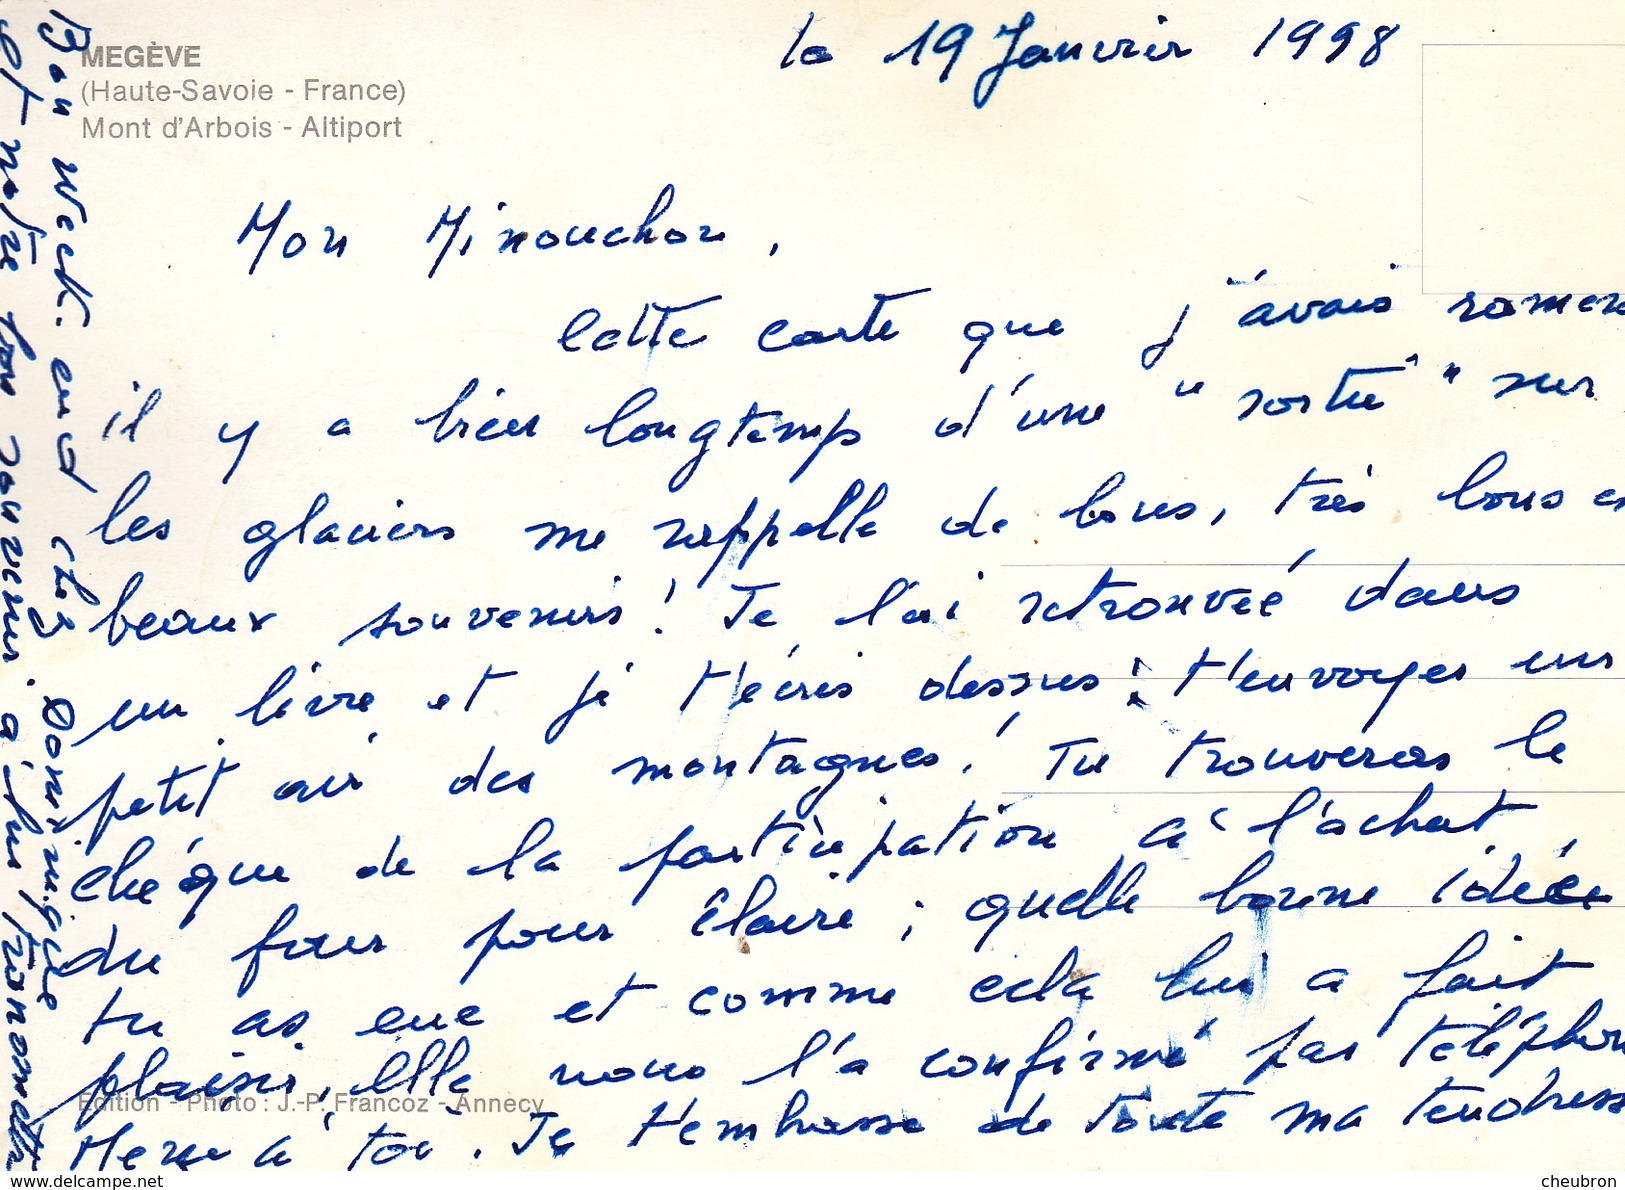 MEGÈVE
(Haute-Savoie - France)
Mont d'Arbois - Altiport
le 19 Janvier 1998
Mon Minouchon,
Cette carte que j'avais ramen
il y a bien longtemps d'une "sortie" sur
les glaciers me rappelle de bons, très bons et
beaux souvenirs! Je l'ai retrouvée dans
un livre et je t'écris dessus: t'envoyer un
petit air des montagnes! Tu trouveras le
chéque de la participation à l'achat
du four pour Claire; quelle bonne idée
tu as eue et comme cela lui a fait
plaisir, elle nous l'a confirmé par téléphon
Merci à toi. Je t'embrasse de toute ma tendress
Edition - Photo : J.-P. Francoz - Annecy
Bon week-end chez Dominique
et notre bon souvenir. à lui
www.delcampe.net
cheubron